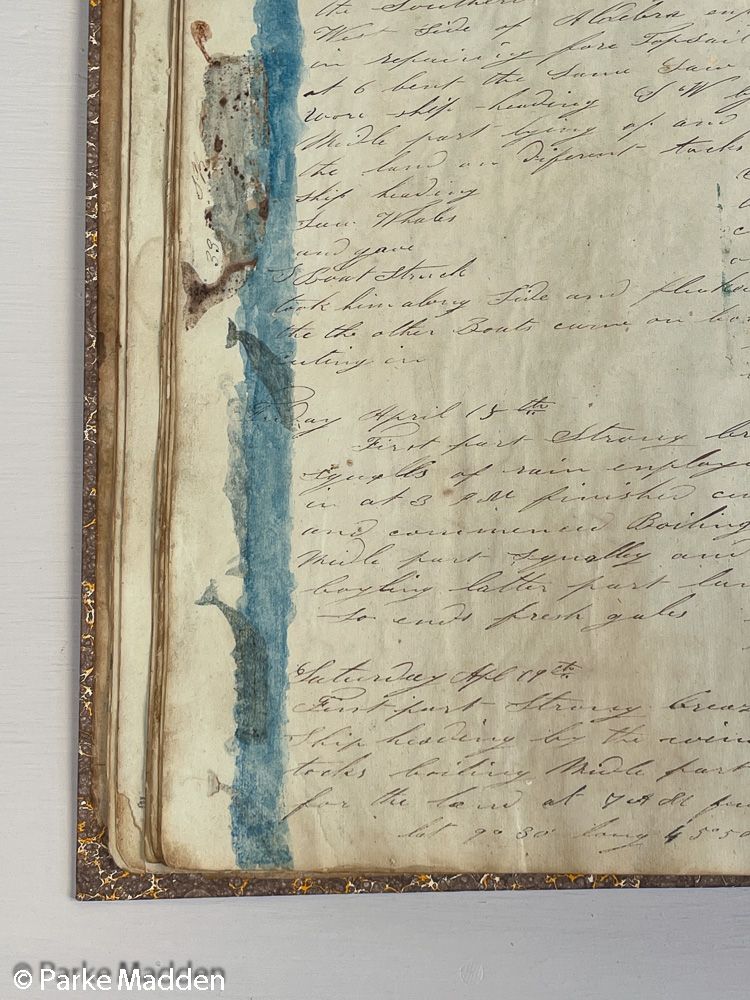 the Southern
West Side of Aldebra emp
in repairing fore Topsail
at 6 bent the Same Saw
wore ship heading S W by
Middle part lying of and
the land on Diferent tacks
Ship heading
Saw Whales
and gave
S Boat Struck
took him along Side and
the the other Boats came on bo
cuting in
Friday April 18th
First part Strong br
squalls of rain employ
in at 3 P M finished cu
and commenced Boiling
Midle part Squally and
boyling latter part
So ends fresh gales
Saturday Apl 19th
First part Strong breaz
Ship heading by the wind
tacks boiling Midle part
for the land at 7 A M
lat 9° 30' long 45°50
38
© Parke Madden